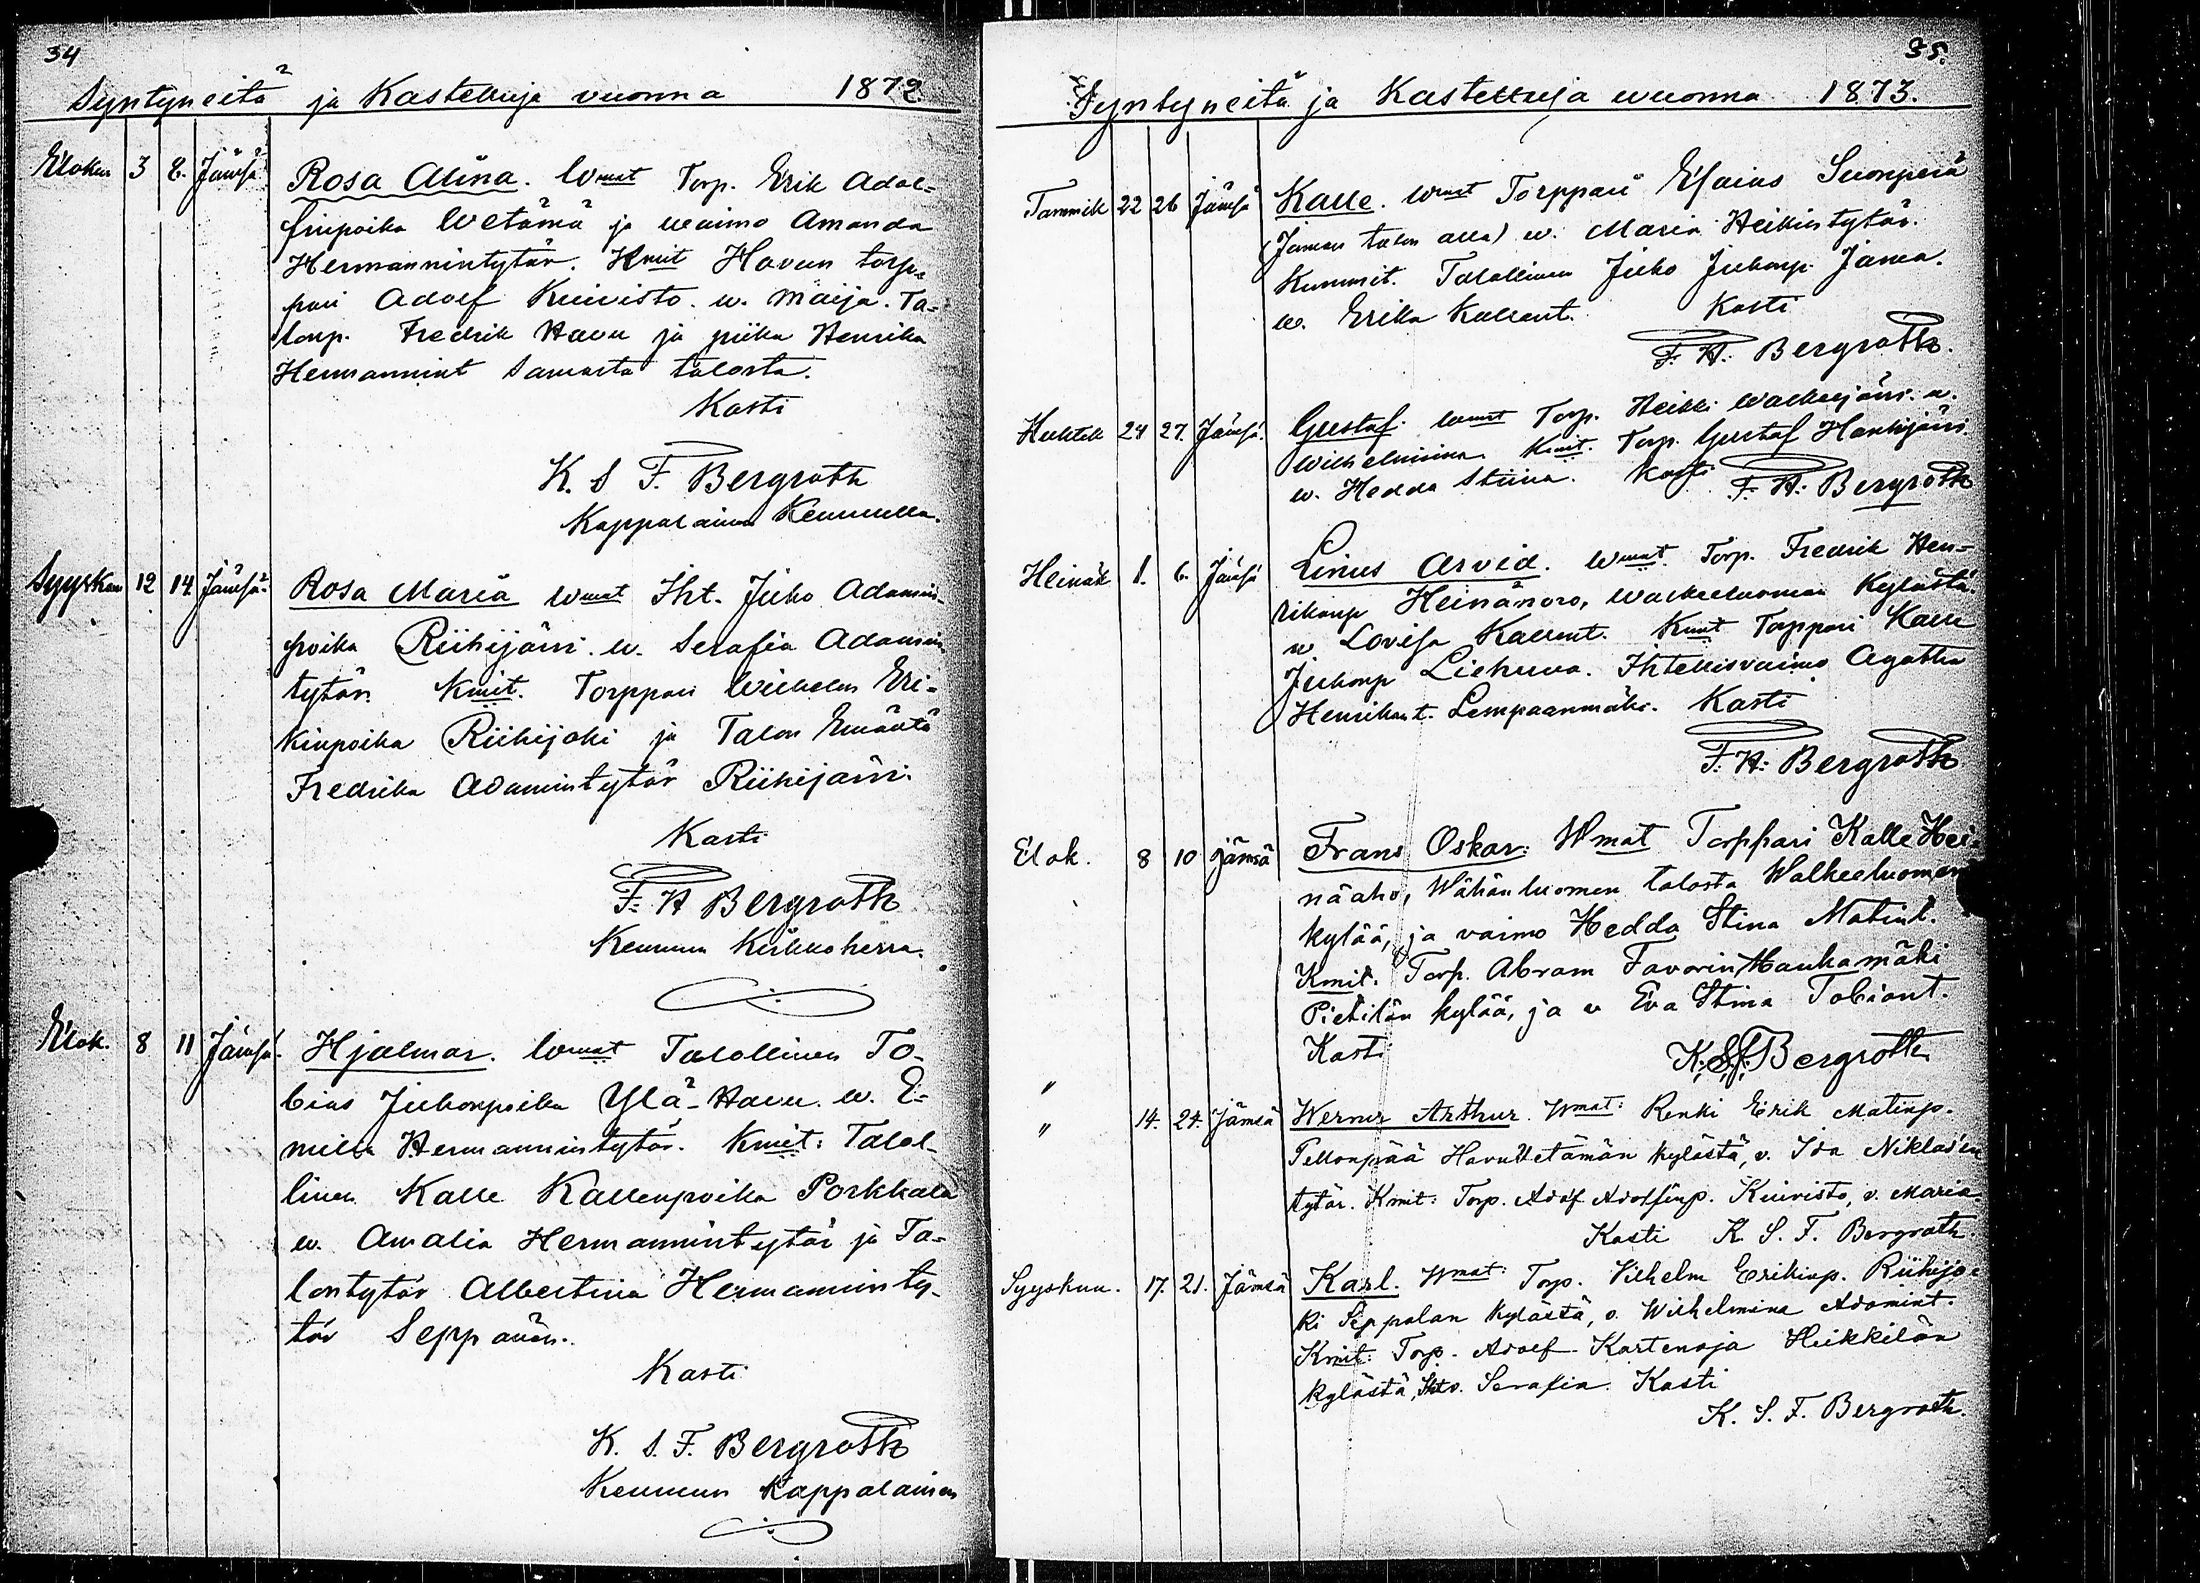 34
Syntyneitä ja Kastettuja vuonna 1872
Elokuu 3 8. Jämsä Rosa Alina. Wmat Torp. Erik Adol-
finpoika Wetämä ja waimo Amanda
Hermannintytär. Kmit Havun torp-
pari Adolf Kuivisto. w. Maija. Ta-
lonp. Fredrik Havu ja piika Henrika
Hermannint samasta talosta.
Kasti
K. S F. Bergroth
Kappalainen Keuruulla.
Syyskuu 12 14 Jämsä Rosa Maria Wmat Iht. Juho Adamin-
poika Riihijärvi. w. Serafia Adamin
tytär. Kmit. Torppari Wilhelm Eri-
kinpoika Riihijoki ja Talon Emäntä
Fredrika Adamintytär Riihijärvi.
Kasti
F. H Bergroth
Keuruun Kirkkoherra.
Elok. 8 11 Jämsä. Hjalmar. Wmat Talollinen To-
bias Juhonpoika Ylä-Havu. w. E-
milia Hermannintytär. Kmit: Talol-
linen Kalle Kallenpoika Porkkala
w. Amalia Hermannintytär ja Ta-
lontytär Albertina Hermanninty-
tär Seppänen.
Kasti
K. S. F. Bergroth
Keuruun Kappalainen
35.
Syntyneitä ja Kastettuja wuonna 1873.
Tammik 22 26 Jämsä Kalle. Wmat Torppari Esaias Suonperä
(Jaman talon alla) w. Maria Heikintytär.
Kummit. Talollinen Juho Juhonp. Jama.
w. Erika Kallent. Kasti
F. H. Bergroth.
Huhtik 24 27. Jämsä. Gustaf. Wmat Torp. Heikki Walkeejärvi. w.
Wilhelmiina. Kmit. Torp. Gustaf Hankijärvi.
w. Hedda Stiina. Kasti F. H. Bergroth
Heinäk 1. 6. Jämsä Linus Arvid. Wmat. Torp. Fredrik Hen-
rikinp Heinänoro, Walkeeluoman Kylästä.
w Lovisa Kallent. Kmit Torppari Kalle
Juhonp Liehuva. Ihtellisvaimo Agatha
Henrikint. Lempaanmäki. Kasti
F. H. Bergroth
Elok. 8 10 Jämsä Frans Oskar: Wmat Torppari Kalle Hei-
näaho, Wähänluoman talosta Walkeeluoman
kylää, ja vaimo Hedda Stina Matint.
Kmit. Torp. Abram Favorin Haukamäki
Pietilän kylää, ja w Eva Stina Tobiant.
Kasti K. S. F. Bergroth
"
" 14. 24. Jämsä Werner Arthur. Wmat: Renki Erik Matinp.
Pellonpää Havu Wetämän kylästä, v. Ida Niklas'en
tytär. Kmit: Torp. Adolf Adolfinp. Kuivisto, v. Maria
Kasti K. S. F. Bergroth.
Syyskuu. 17. 21. Jämsä Karl. Wmat: Torp. Vilhelm Erikinp. Riihijo-
ki Seppälän kylästä, v. Wilhelmina Adamint.
Kmit: Torp. Adolf Kartenoja Heikkilän
kylästä, Serafia. Kasti
K. S. F. Bergroth.